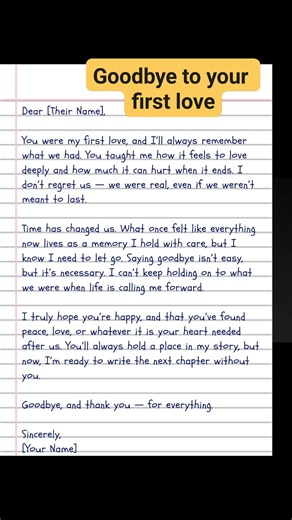 Goodbye to your
first love
Dear [Their Name],
You were my first love, and I'll always remember
what we had. You taught me how it feels to love
deeply and how much it can hurt when it ends. I
don't regret us — we were real, even if we weren't
meant to last.
Time has changed us. What once felt like everything
now lives as a memory I hold with care, but I
know I need to let go. Saying goodbye isn't easy,
but it's necessary. I can't keep holding on to what
we were when life is calling me forward.
I truly hope you're happy, and that you've found
peace, love, or whatever it is your heart needed
after us. You'll always hold a place in my story, but
now, I'm ready to write the next chapter without
you.
Goodbye, and thank you — for everything.
Sincerely,
[Your Name]